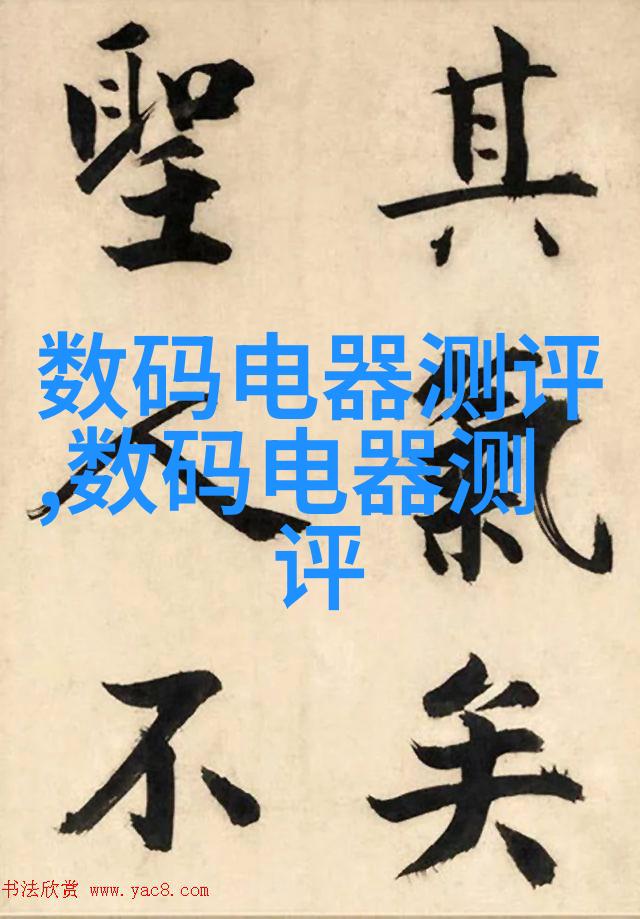 其氣矣
聖人不
数码电器测评
,数码电器测
评
书法欣赏 www.yac8.com